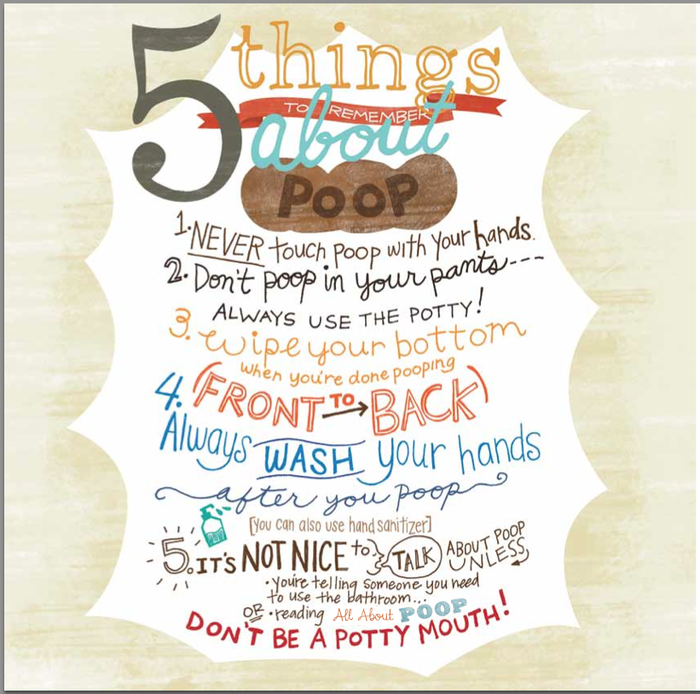 5 things
TO REMEMBER
about
POOP
1. NEVER touch poop with your hands.
2. Don't poop in your pants---
ALWAYS USE THE POTTY!
3. wipe your bottom
when you're done pooping
(FRONT TO → BACK)
4. Always WASH your hands
after you poop
[you can also use hand sanitizer]
5. IT'S NOT NICE to TALK ABOUT POOP UNLESS
• you're telling someone you need
to use the bathroom...
OR • reading All About POOP
DON'T BE A POTTY MOUTH!